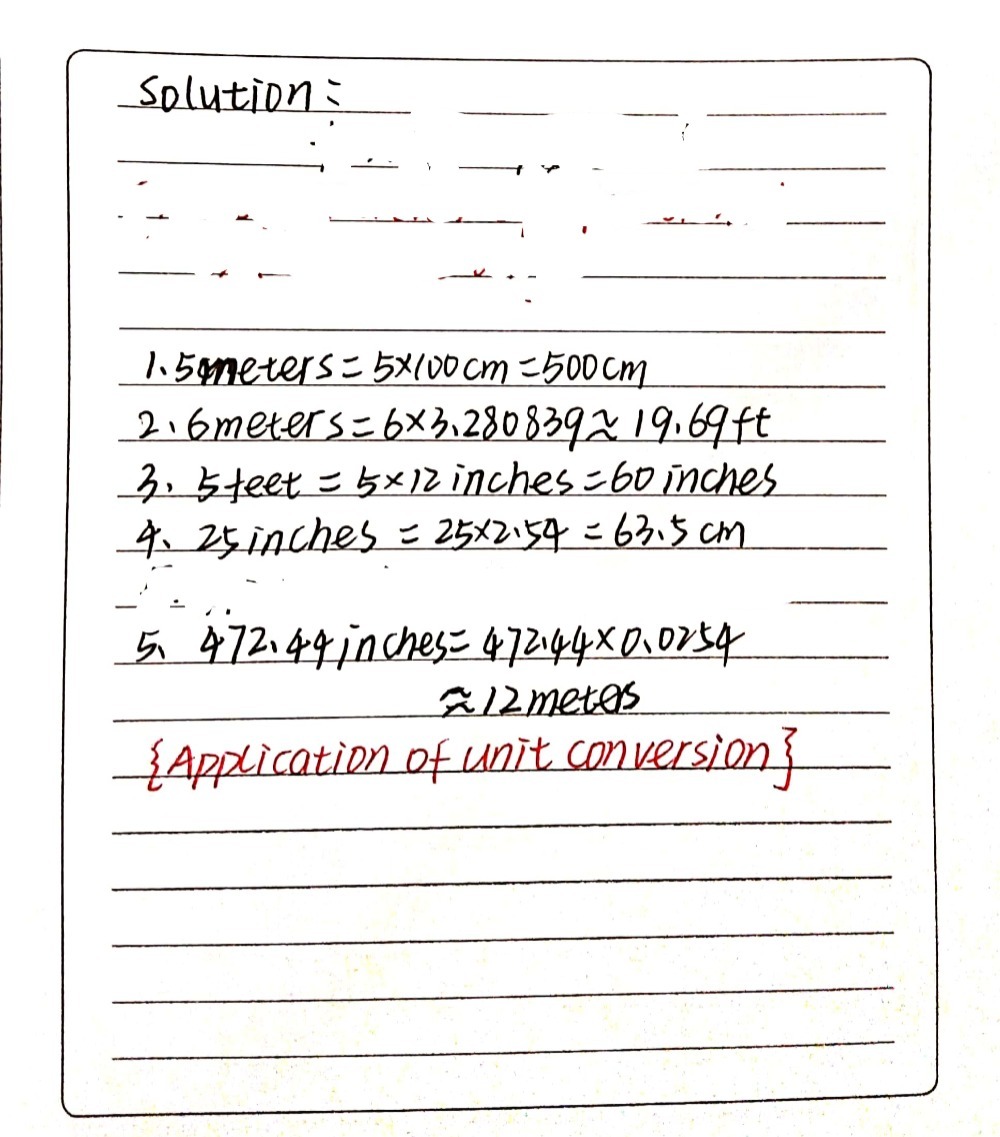 Solution:
1. 5meters = 5×100cm = 500cm
2. 6meters = 6×3.280839 ≈ 19.69ft
3. 5feet = 5×12 inches = 60 inches
4. 25inches = 25×2.54 = 63.5 cm
5. 472.44 inches = 472.44×0.0254
≈ 12 meters
{Application of unit conversion}